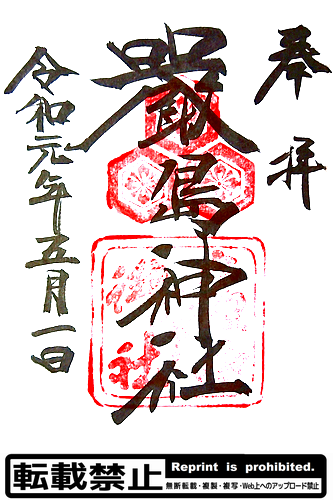 奉拝
嚴島神社
令和元年五月一日
転載禁止
Reprint is prohibited.
無断転載・複製・複写・Web上へのアップロード禁止